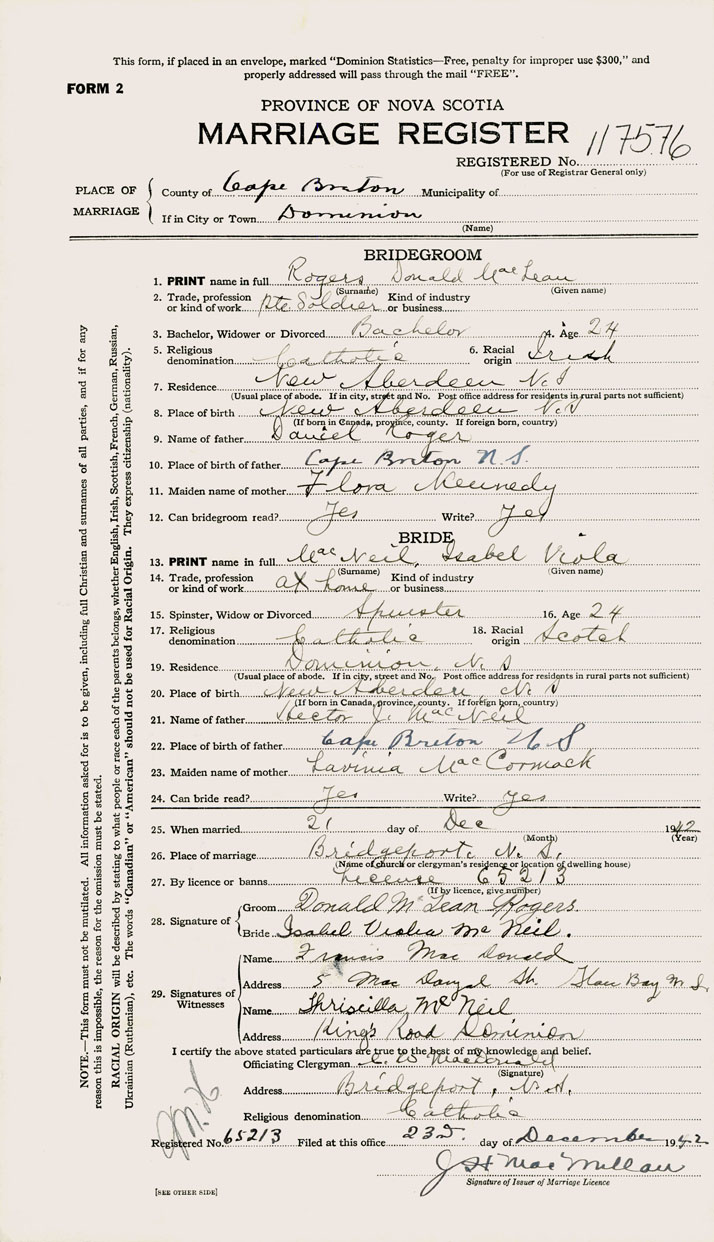 This form, if placed in an envelope, marked "Dominion Statistics—Free, penalty for improper use $300," and
properly addressed will pass through the mail "FREE".
FORM 2
PROVINCE OF NOVA SCOTIA
MARRIAGE REGISTER
REGISTERED No. 117576
(For use of Registrar General only)
PLACE OF MARRIAGE
County of Cape Breton Municipality of
If in City or Town Dominion
(Name)
BRIDEGROOM
1. PRINT name in full Rogers Donald MacLean
(Surname) (Given name)
2. Trade, profession or kind of work Pte Soldier Kind of industry or business
3. Bachelor, Widower or Divorced Bachelor 4. Age 24
5. Religious denomination Catholic 6. Racial origin Irish
7. Residence New Aberdeen N.S
(Usual place of abode. If in city, street and No. Post office address for residents in rural parts not sufficient)
8. Place of birth New Aberdeen N.S
(If born in Canada, province, county. If foreign born, country)
9. Name of father Daniel Roger
10. Place of birth of father Cape Breton N.S.
11. Maiden name of mother Flora Kennedy
12. Can bridegroom read? Yes Write? Yes
BRIDE
13. PRINT name in full MacNeil, Isabel Viola
(Surname) (Given name)
14. Trade, profession or kind of work at home Kind of industry or business
15. Spinster, Widow or Divorced Spinster 16. Age 24
17. Religious denomination Catholic 18. Racial origin Scotch
19. Residence Dominion, N. S
(Usual place of abode. If in city, street and No. Post office address for residents in rural parts not sufficient)
20. Place of birth New Aberdeen, N. S
(If born in Canada, province, county. If foreign born, country)
21. Name of father Hector J. MacNeil
22. Place of birth of father Cape Breton N S
23. Maiden name of mother Lavinia MacCormack
24. Can bride read? Yes Write? Yes
25. When married 21 day of Dec 1942
(Month) (Year)
26. Place of marriage Bridgeport, N. S.
(Name of church or clergyman's residence or location of dwelling house)
27. By licence or banns License 65213
(If by licence, give number)
28. Signature of
Groom Donald McLean Rogers.
Bride Isabel Viola McNeil.
29. Signatures of Witnesses
Name Francis MacDonald
Address 5 St. Glace Bay N.S.
Name McNeil
Address King's Road Dominion
I certify the above stated particulars are true to the best of my knowledge and belief.
Officiating Clergyman MacDonald
(Signature)
Address Bridgeport, N.S.
Religious denomination Catholic
Registered No. 65213 Filed at this office 23rd. day of December 1942
J H MacMillan
Signature of Issuer of Marriage Licence
[SEE OTHER SIDE]
NOTE.—This form must not be mutilated. All information asked for is to be given, including full Christian and surnames of all parties, and if for any
reason this is impossible, the reason for the omission must be stated.
RACIAL ORIGIN will be described by stating to what people or race each of the parents belongs, whether English, Irish, Scottish, French, German, Russian,
Ukrainian (Ruthenian), etc. The words "Canadian" or "American" should not be used for Racial Origin. They express citizenship (nationality).